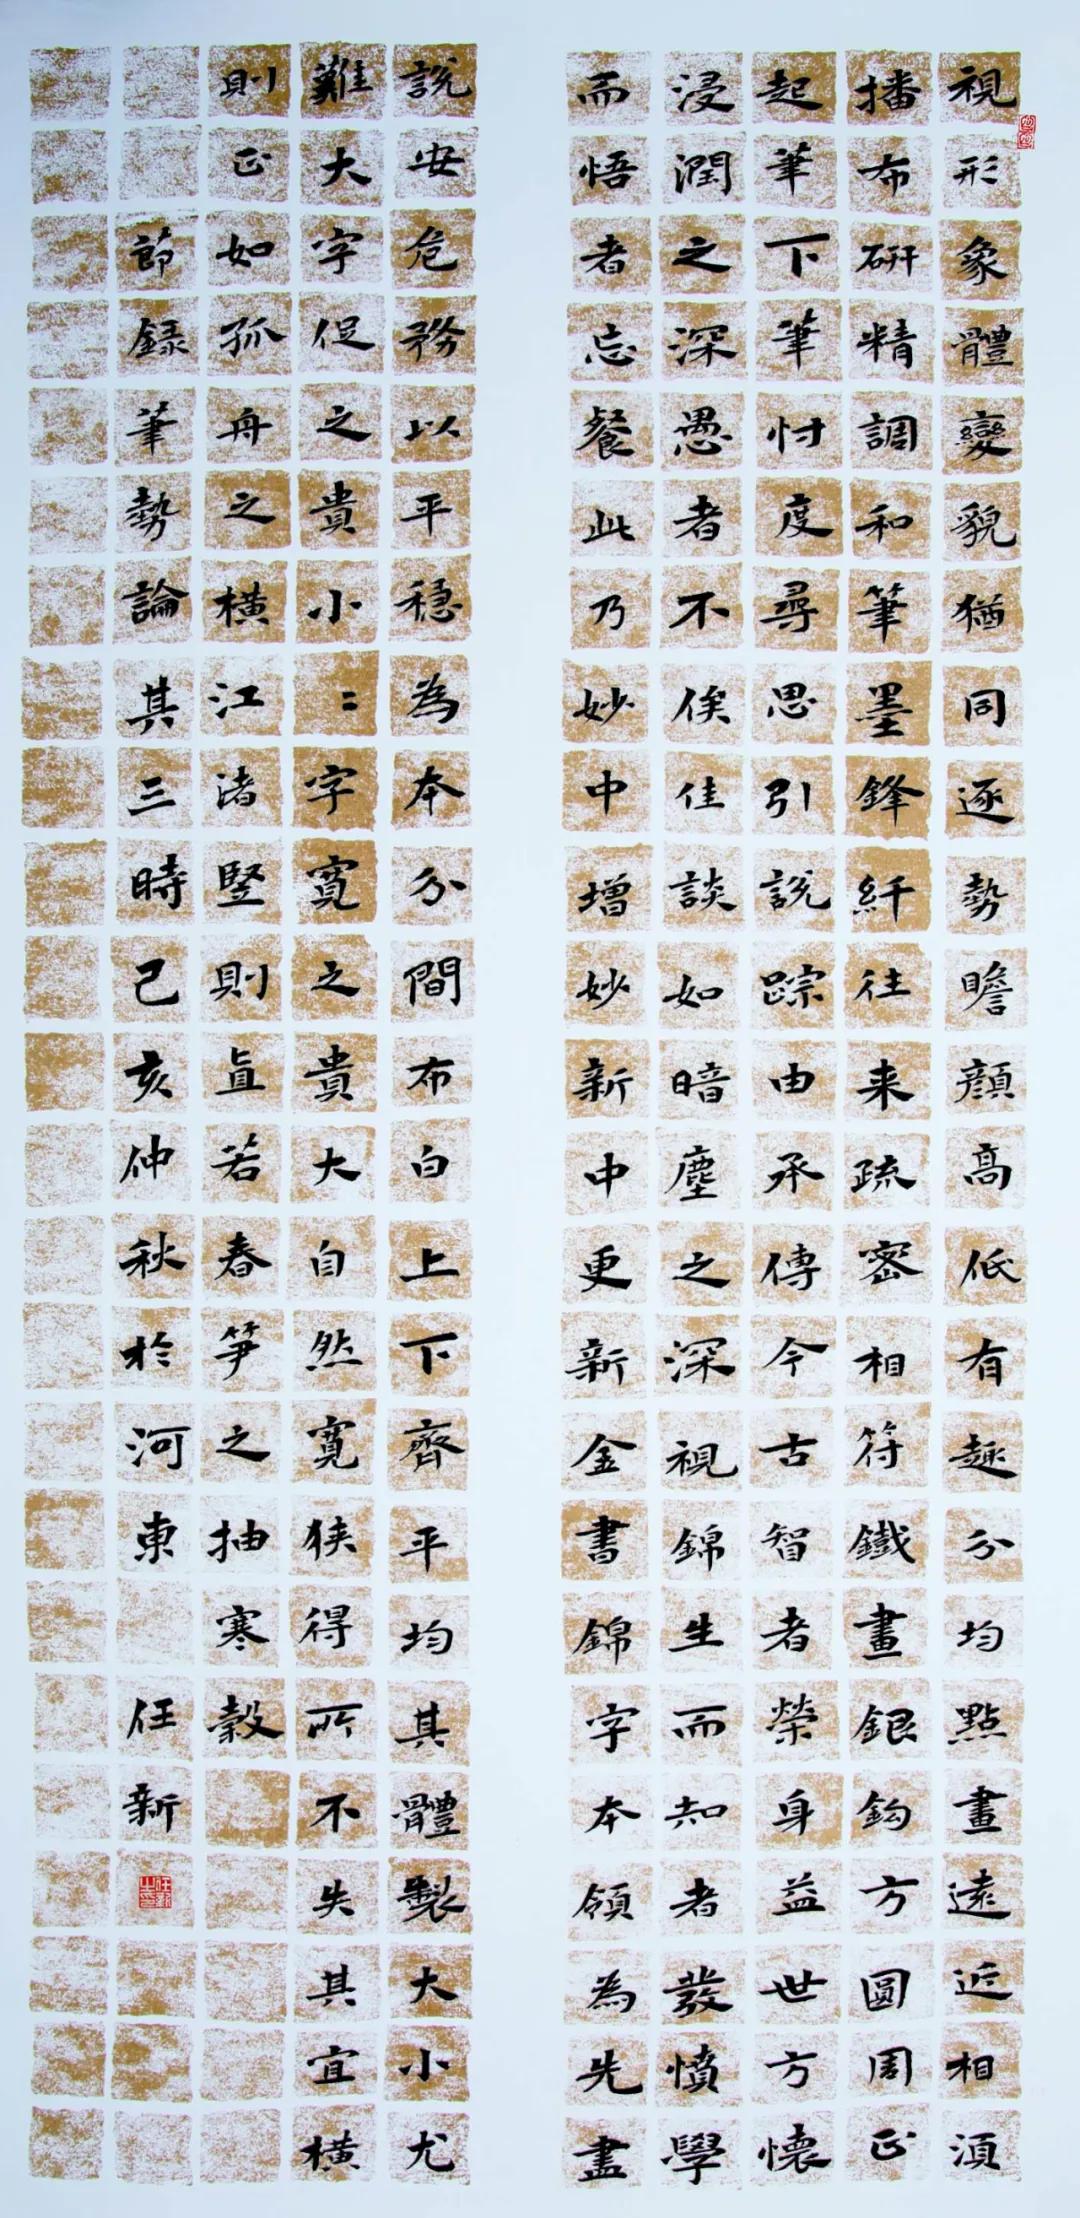 視形象體變貌猶同逐勢瞻顏高低有趣分均點畫遠近相須
播布研精調和筆墨鋒纖往来疏密相符鐵畫銀鈎方圓周正
起筆下筆忖度尋思引說踪由承傳今古智者榮身益世方懷
浸潤之深愚者不俟佳談如暗塵之深視錦生而知者發憤學
而悟者忘餐此乃妙中增妙新中更新金書錦字本領為先盡
說安危務以平穩為本分間布白上下齊平均其體製大小尤
難大字促之貴小〻字寬之貴大自然寬狭得所不失其宜橫
則正如孤舟之橫江渚竪則直若春笋之抽寒谷
節録筆勢論其三時己亥仲秋於河東任新